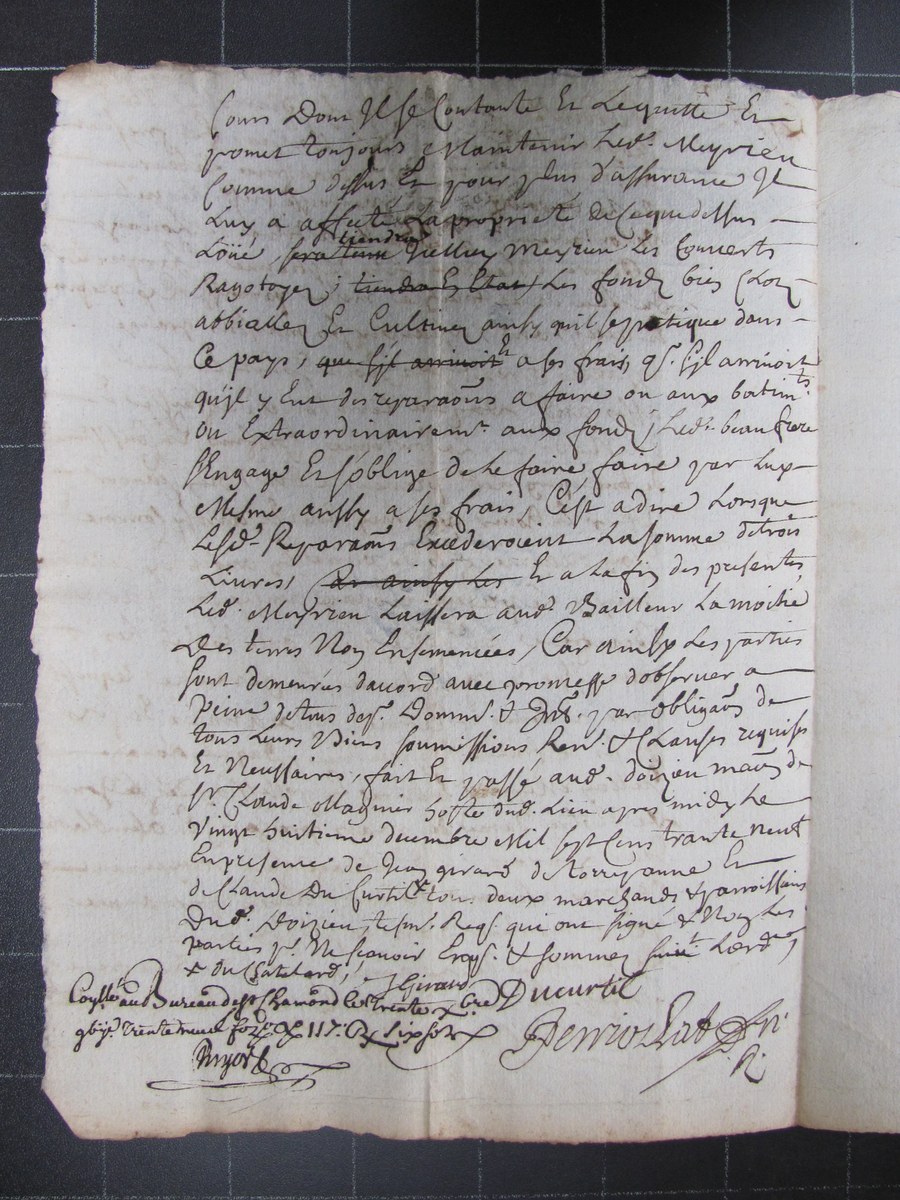 Cours Dont Il se Contante Et Lequitte Et
promet toujours Maintenir Led. Meyrieu
Comme dessus Et pour plus d'assurance Il
Luy a affecté La propriete de Ceque dessus
Loüé, sera tenu tiendra Meyrieu Les Couverts
tiendra En Etat, Les fonds
Et Cultiver ainsy quil se pratique dans
Ce pays, que s'il arrivoit Et a ses frais, q. s'il arrivoit
qu'il y Eut des reparaons a faire ou aux batim.ts
Ou Extraordinairem.t aux fonds, Led. beau frere
s'Engage Et s'oblige de Le faire faire par Luy
Mesme aussy a ses frais, C'est a dire Lorsque
Lesd. Reparaons Excederoient La somme de trois
Livres, Car ainsy Les Et a La fin des presentes
Led. Meyrieu Laissera aud. Bailleur La moitié
Des terres Non Ensemencées, Car ainsy Les parties
sont demeurés dacord avec promesse d'observer a
Peine de tous desp. Domm. & Int. par obligaon de
tous Leurs Biens soumissions Ren. & Clauses requises
Et Nessaires, fait Et passé aud. doizieu maison de
Sr. Claude Magnier hoste dud. Lieu apres midy Le
Vingt huitieme decembre Mil sept Cens trante Neuf
En presence de Jean girard de Et
de Claude Du Curtil + tous deux marchands & parroissiens
Dud. Doizieu, tesm. Reqs. qui ont signé & Non Les
parties p. Ne scavoir Enqs. & sommes
+ du Chatelard,
JGirard
Ducurtil
Coll. au Bureau de St Chamond Le trente xbre
trente neuf fo. 117